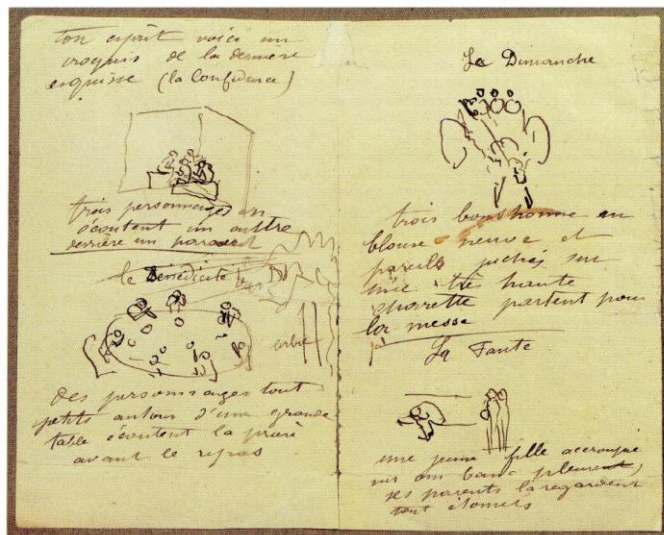 ton esprit voici un
croquis de la dernière
esquisse (la Confidence)
trois personnages en
écoutent un autre
derrière un paravent
le Bénédicité
arbre
des personnages tout
petits autour d'une grande
table écoutent la prière
avant le repas
Le Dimanche
trois bonshomme en
blouse neuve et
pareils juchés sur
une très haute
charrette partent pour
la messe
La Faute
une jeune fille accroupie
sur un banc pleurent
ses parents la regardent
tout étonnés